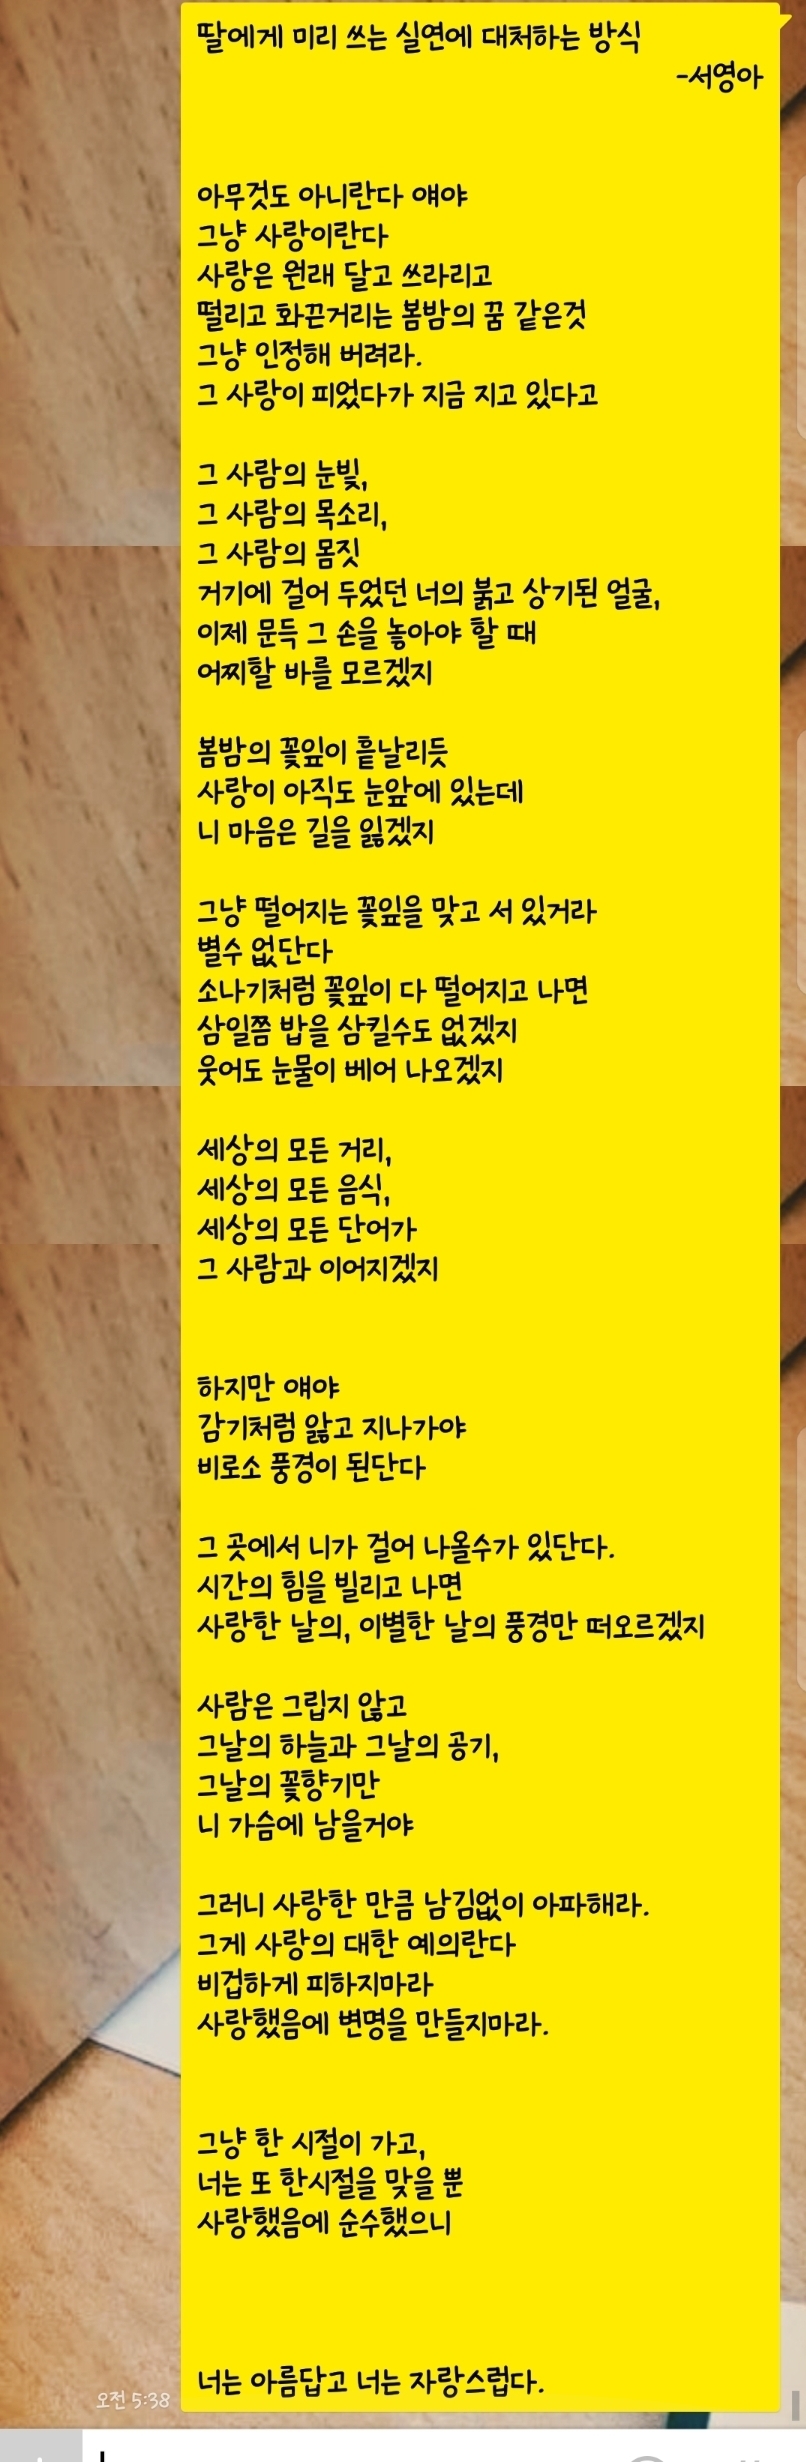 딸에게 미리 쓰는 실연에 대처하는 방식
-서영아
아무것도 아니란다 얘야
그냥 사랑이란다
사랑은 원래 달고 쓰라리고
떨리고 화끈거리는 봄밤의 꿈 같은것
그냥 인정해 버려라.
그 사랑이 피었다가 지금 지고 있다고
그 사람의 눈빛,
그 사람의 목소리,
그 사람의 몸짓
거기에 걸어 두었던 너의 붉고 상기된 얼굴,
이제 문득 그 손을 놓아야 할 때
어찌할 바를 모르겠지
봄밤의 꽃잎이 흩날리듯
사랑이 아직도 눈앞에 있는데
니 마음은 길을 잃겠지
그냥 떨어지는 꽃잎을 맞고 서 있거라
별수 없단다
소나기처럼 꽃잎이 다 떨어지고 나면
삼일쯤 밥을 삼킬수도 없겠지
웃어도 눈물이 베어 나오겠지
세상의 모든 거리,
세상의 모든 음식,
세상의 모든 단어가
그 사람과 이어지겠지
하지만 얘야
감기처럼 앓고 지나가야
비로소 풍경이 된단다
그 곳에서 니가 걸어 나올수가 있단다.
시간의 힘을 빌리고 나면
사랑한 날의, 이별한 날의 풍경만 떠오르겠지
사람은 그립지 않고
그날의 하늘과 그날의 공기,
그날의 꽃향기만
니 가슴에 남을거야
그러니 사랑한 만큼 남김없이 아파해라.
그게 사랑의 대한 예의란다
비겁하게 피하지마라
사랑했음에 변명을 만들지마라.
그냥 한 시절이 가고,
너는 또 한시절을 맞을 뿐
사랑했음에 순수했으니
너는 아름답고 너는 자랑스럽다.
오전 5:38